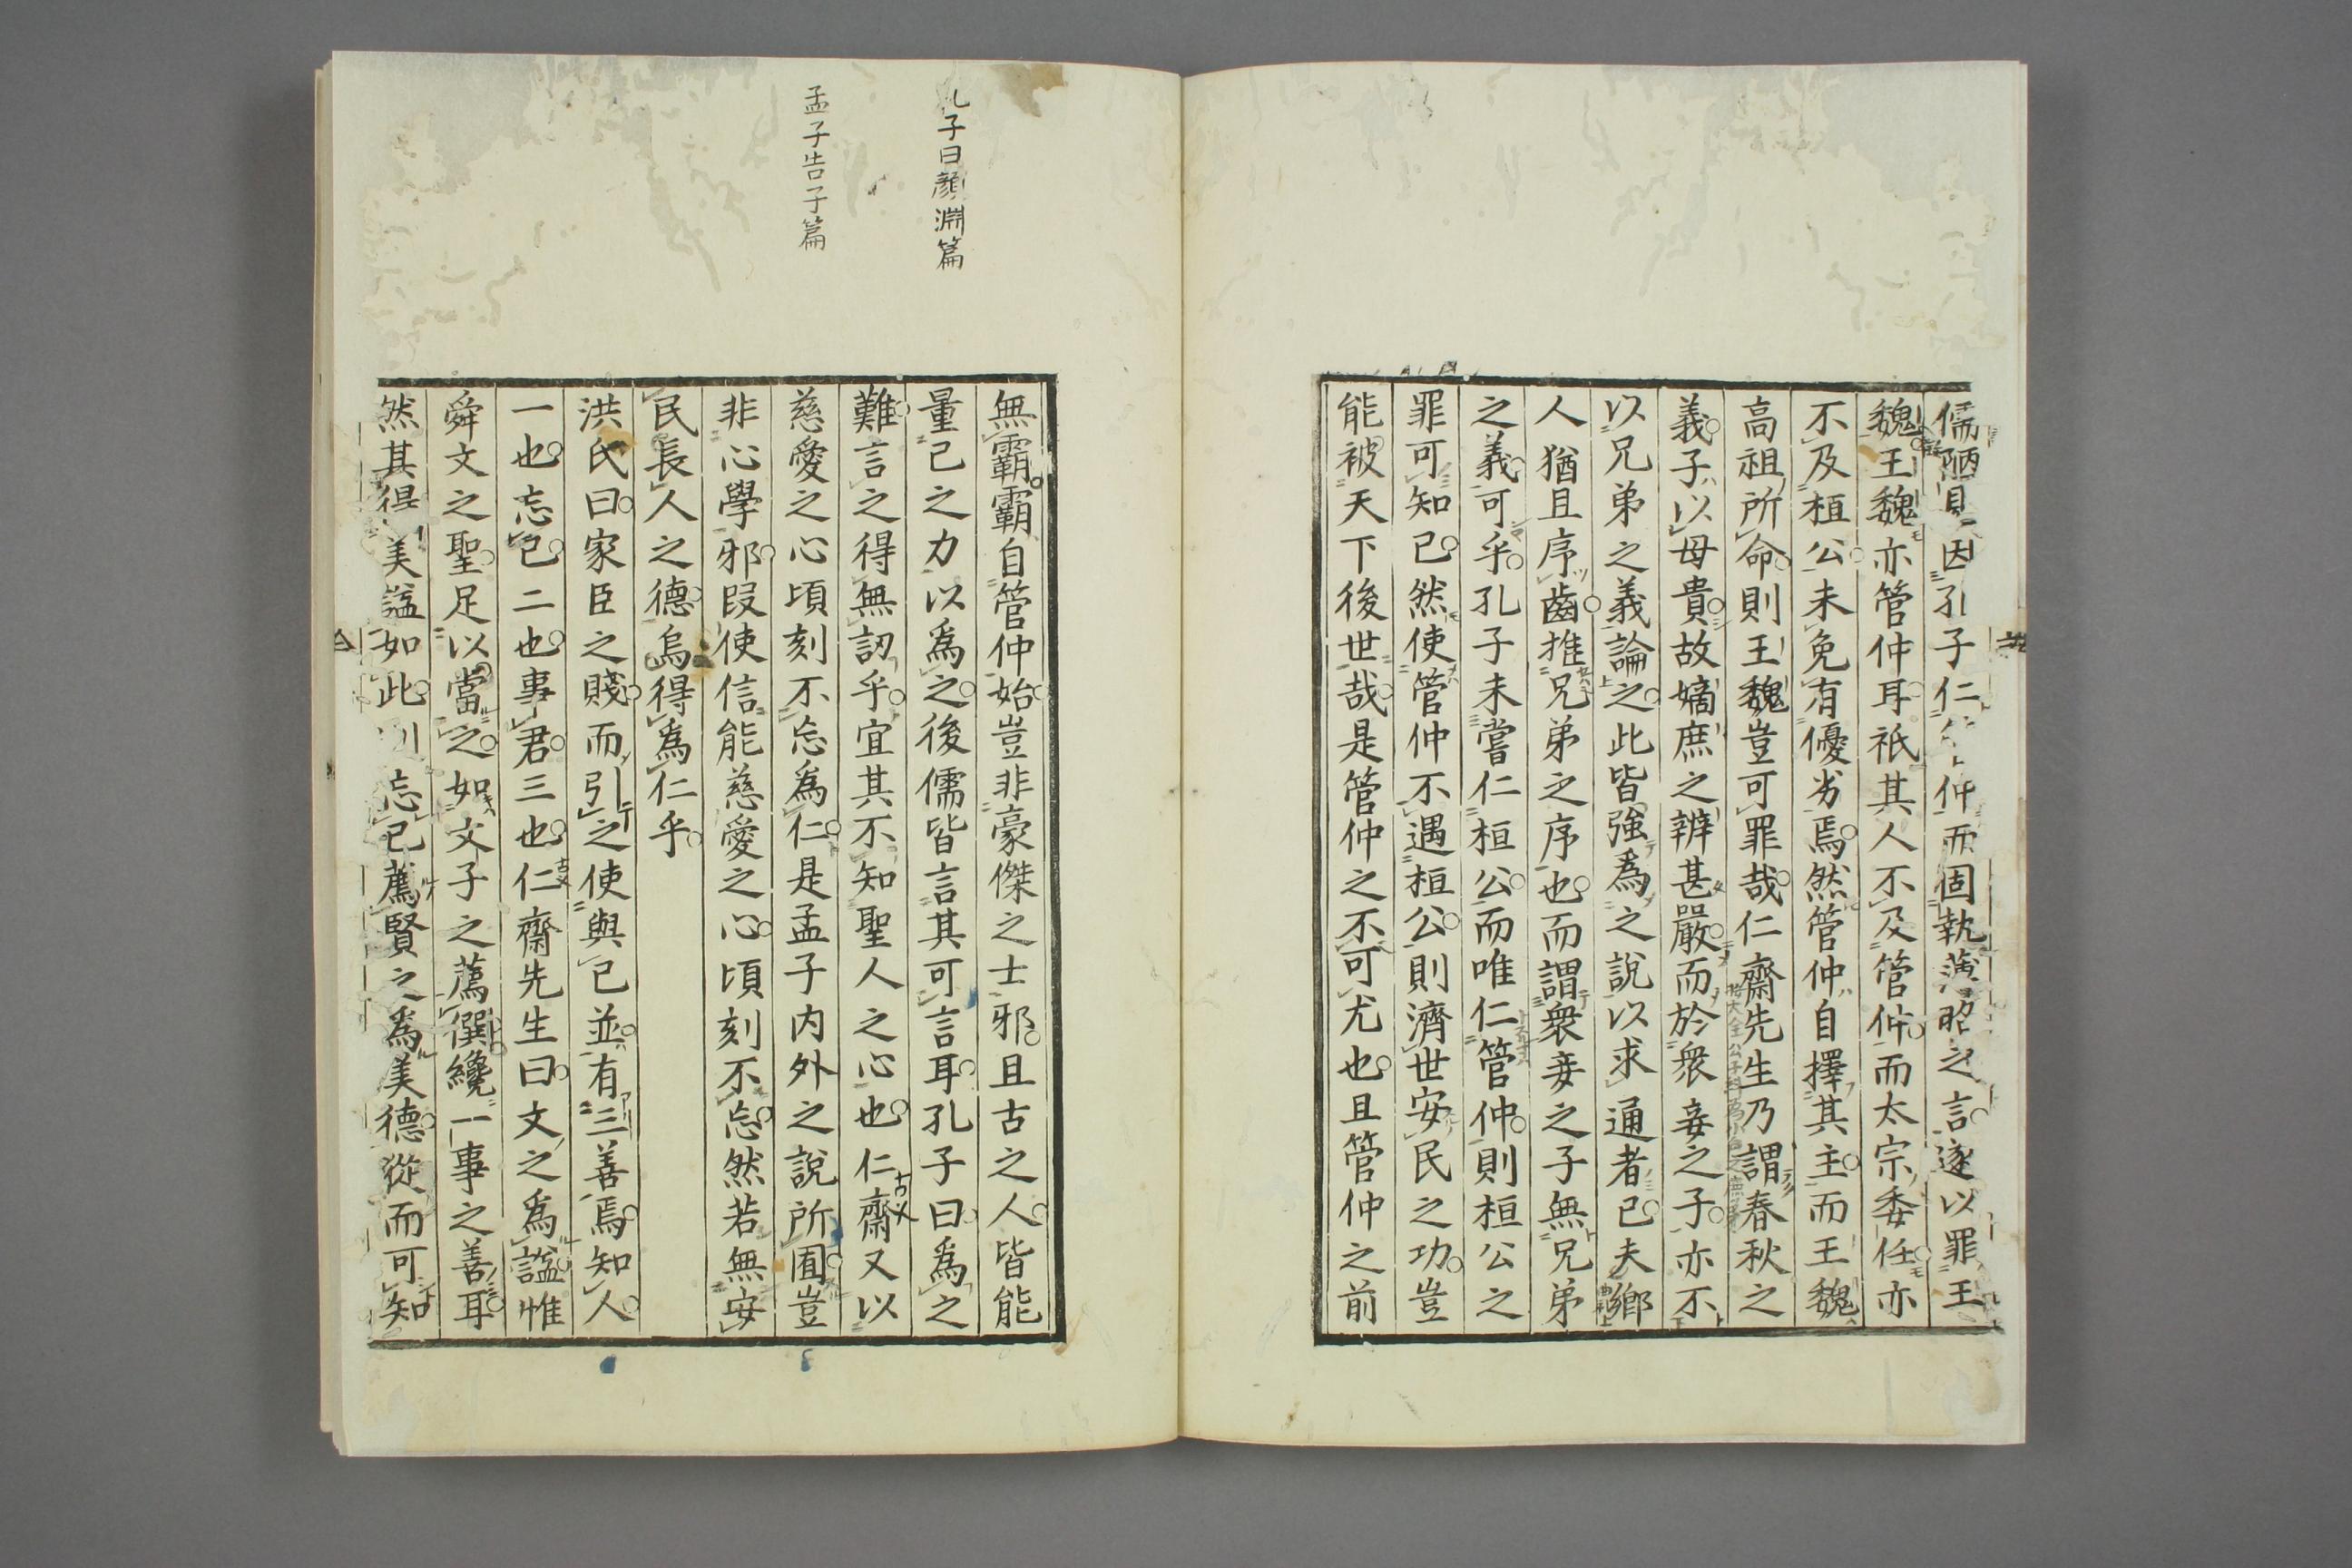 儒陋見因孔子仁管仲而固執薄昭之言遂以罪王
魏王魏亦管仲耳祇其人不及管仲而太宗委任亦
不及桓公未免有優劣焉然管仲自擇其主而王魏
高祖所命則王魏豈可罪哉仁齋先生乃謂春秋之
義子以母貴故嫡庶之辨甚嚴而於衆妾之子亦不
以兄弟之義論之此皆強爲之說以求通者已夫鄉
人猶且序齒推兄弟之序也而謂衆妾之子無兄弟
之義可乎孔子未嘗仁桓公而唯仁管仲則桓公之
罪可知已然使管仲不遇桓公則濟世安民之功豈
能被天下後世哉是管仲之不可尤也且管仲之前
無霸霸自管仲始豈非豪傑之士邪且古之人皆能
量己之力以爲之後儒皆言其可言耳孔子曰爲之
難言之得無訒乎宜其不知聖人之心也仁齋又以
慈愛之心頃刻不忘爲仁是孟子內外之說所囿豈
非心學邪叚使信能慈愛之心頃刻不忘然若無安
民長人之德烏得爲仁乎
洪氏曰家臣之賤而引之使與己並有三善焉知人
一也忘己二也事君三也仁齋先生曰文之爲謚惟
舜文之聖足以當之如文子之薦僎纔一事之善耳
然其得美謚如此則忘己薦賢之爲美德從而可知
孔子曰顏淵篇
孟子告子篇
古義
古義